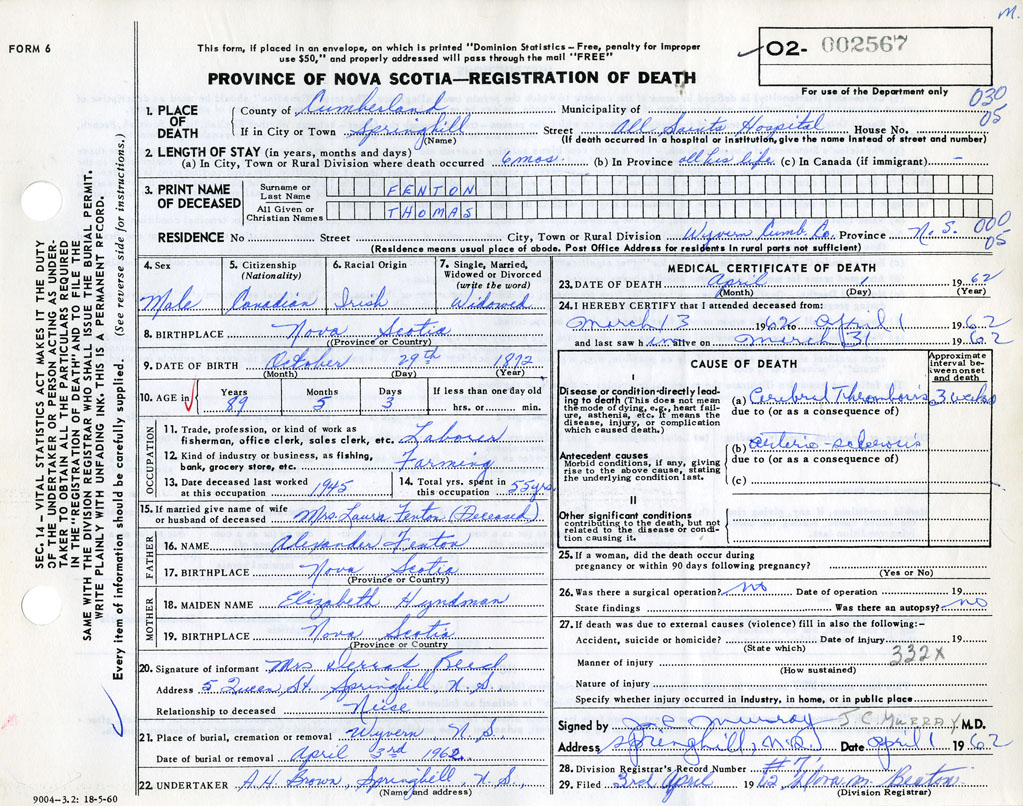 M.
FORM 6
This form, if placed in an envelope, on which is printed "Dominion Statistics—Free, penalty for improper
use $50," and properly addressed will pass through the mail "FREE"
PROVINCE OF NOVA SCOTIA—REGISTRATION OF DEATH
02- 002567
For use of the Department only
030
05
1. PLACE OF DEATH
County of Cumberland Municipality of
If in City or Town Springhill Street All Saints Hospital House No.
(Name) (If death occurred in a hospital or institution, give its name instead of street and number)
2. LENGTH OF STAY (in years, months and days)
(a) In City, Town or Rural Division where death occurred 6 mos. (b) In Province all his life (c) In Canada (if immigrant) -
3. PRINT NAME OF DECEASED
Surname or Last Name FENTON
All Given or Christian Names THOMAS
RESIDENCE No Street City, Town or Rural Division Wyvern Cumb. Co. Province N. S.
000
05
(Residence means usual place of abode. Post Office Address for residents in rural parts not sufficient)
4. Sex Male
5. Citizenship (Nationality) Canadian
6. Racial Origin Irish
7. Single, Married, Widowed or Divorced (write the word) Widowed
8. BIRTHPLACE Nova Scotia
(Province or Country)
9. DATE OF BIRTH October 29th 1872
(Month) (Day) (Year)
10. AGE in Years 89 Months 5 Days 3 If less than one day old hrs. or min.
OCCUPATION
11. Trade, profession, or kind of work as
fisherman, office clerk, sales clerk, etc. Laborer
12. Kind of industry or business, as fishing,
bank, grocery store, etc. Farming
13. Date deceased last worked at this occupation 1945
14. Total yrs. spent in this occupation 55 yrs.
15. If married give name of wife
or husband of deceased Mrs. Laura Fenton (Deceased)
FATHER
16. NAME Alexander Fenton
17. BIRTHPLACE Nova Scotia
(Province or Country)
MOTHER
18. MAIDEN NAME Elizabeth Hyndman
19. BIRTHPLACE Nova Scotia
(Province or Country
20. Signature of informant Mrs Reid
Address 5 Queen St Springhill, N. S,
Relationship to deceased Neice
21. Place of burial, cremation or removal Wyvern N. S.
Date of burial or removal April 3rd 1962
22. UNDERTAKER A.H. Brown, Springhill N. S.,
(Name and address)
9004—3.2: 18-5-60
MEDICAL CERTIFICATE OF DEATH
23. DATE OF DEATH April 1 1962
(Month) (Day) (Year)
24. I HEREBY CERTIFY that I attended deceased from:
March 13 1962 to April 1 1962
and last saw him alive on March 31 1962
CAUSE OF DEATH
Approximate interval between onset and death
I
Disease or condition directly leading to death (This does not mean the mode of dying, e.g., heart failure, asthenia, etc. It means the disease, injury, or complication which caused death.)
(a) Cerebral Thrombosis 3 weeks
due to (or as a consequence of)
Antecedent causes
Morbid conditions, if any, giving rise to the above cause, stating the underlying condition last.
(b) arterio-sclerosis
due to (or as a consequence of)
(c)
II
Other significant conditions
contributing to the death, but not related to the disease or condition causing it.
25. If a woman, did the death occur during
pregnancy or within 90 days following pregnancy?
(Yes or No)
26. Was there a surgical operation? NO Date of operation 19
State findings Was there an autopsy? NO
27. If death was due to external causes (violence) fill in also the following:-
Accident, suicide or homicide? Date of injury 19
(State which)
332X
Manner of injury
(How sustained)
Nature of injury
Specify whether injury occurred in industry, in home, or in public place
Signed by J C Murray J.C. MURRAY M.D.
Address Springhill, N.S. Date April 1 1962
28. Division Registrar's Record Number #7
29. Filed 3rd April 1962 M. Beaton
(Division Registrar)
SEC. 14—VITAL STATISTICS ACT MAKES IT THE DUTY
OF THE UNDERTAKER OR PERSON ACTING AS UNDERTAKER TO OBTAIN ALL THE PARTICULARS REQUIRED
IN THE "REGISTRATION OF DEATH" AND TO FILE THE
SAME WITH THE DIVISION REGISTRAR WHO SHALL ISSUE THE BURIAL PERMIT.
WRITE PLAINLY WITH UNFADING INK. THIS IS A PERMANENT RECORD.
Every item of information should be carefully supplied. (See reverse side for instructions.)